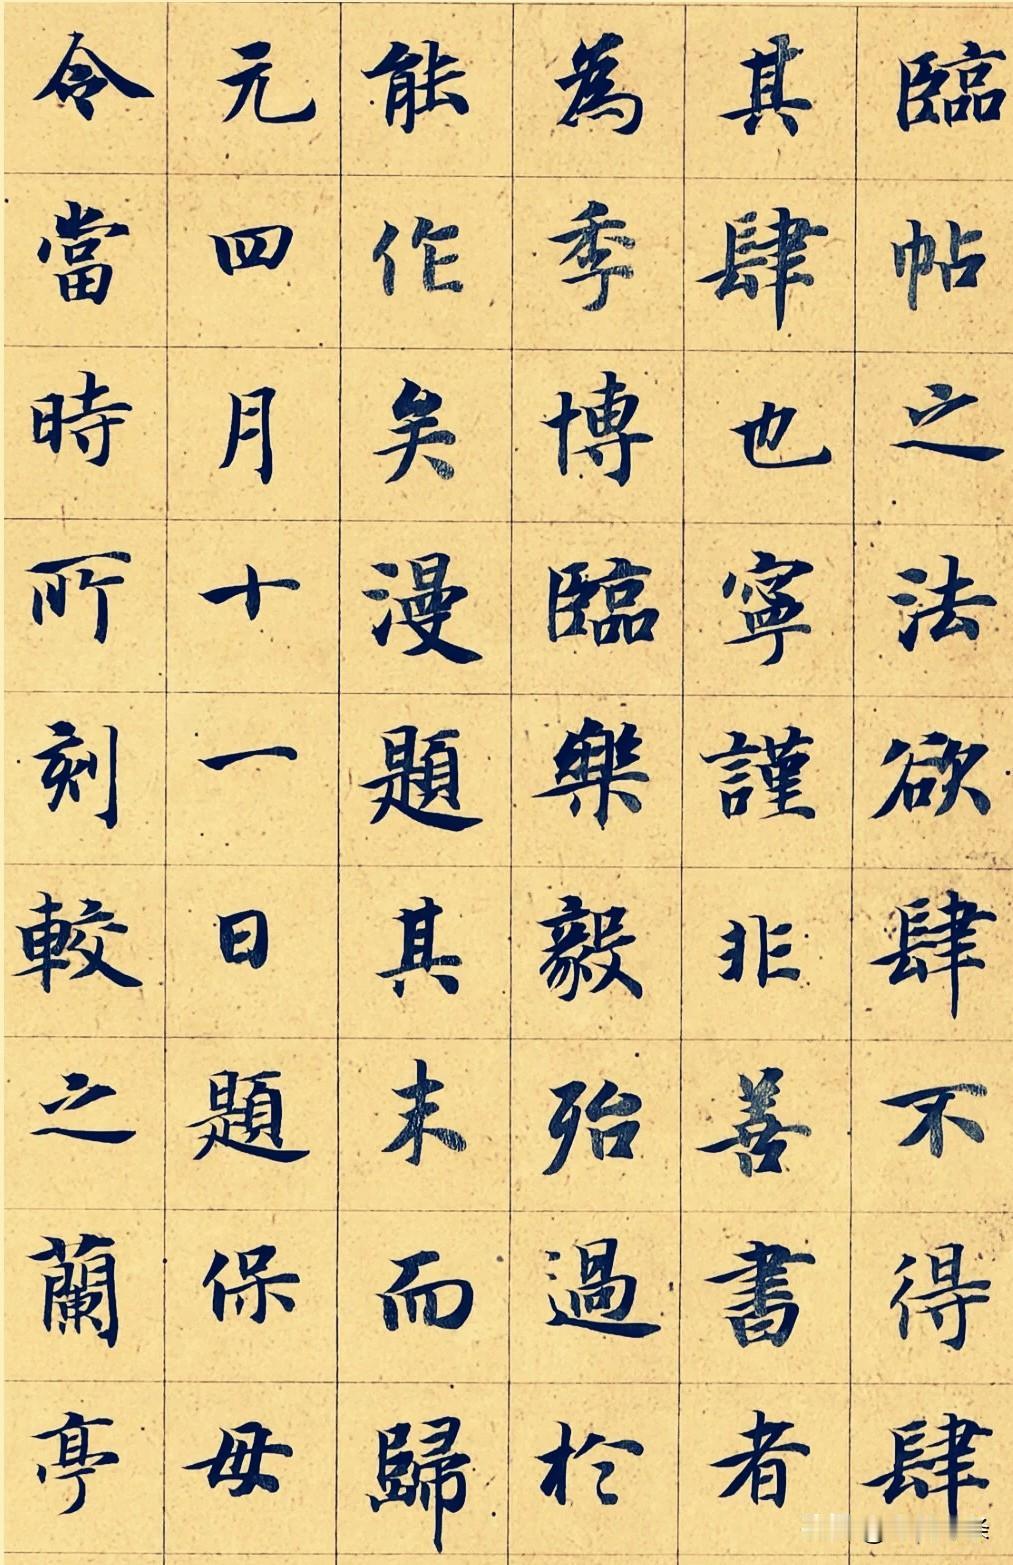 臨帖之法欲肆不得肆
其肆也寧謹非善書者
為季博臨樂毅殆過於
能作矣漫題其末而歸
元四月十一日題保母
令當時所刻較之蘭亭